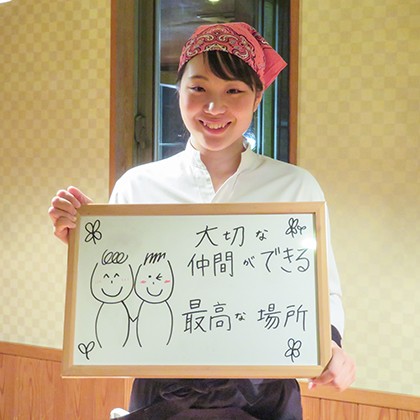 大切な
仲間ができる
最高な場所